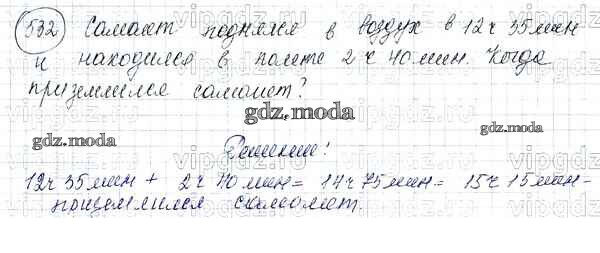 532 Самолет поднялся в воздух в 12 ч 35 мин
и находился в полете 2 ч 40 мин. Когда
приземлился самолет?
gdz.moda
gdz.moda
gdz.moda
Решение:
12 ч 35 мин + 2 ч 40 мин = 14 ч 75 мин = 15 ч 15 мин -
приземлился самолет.